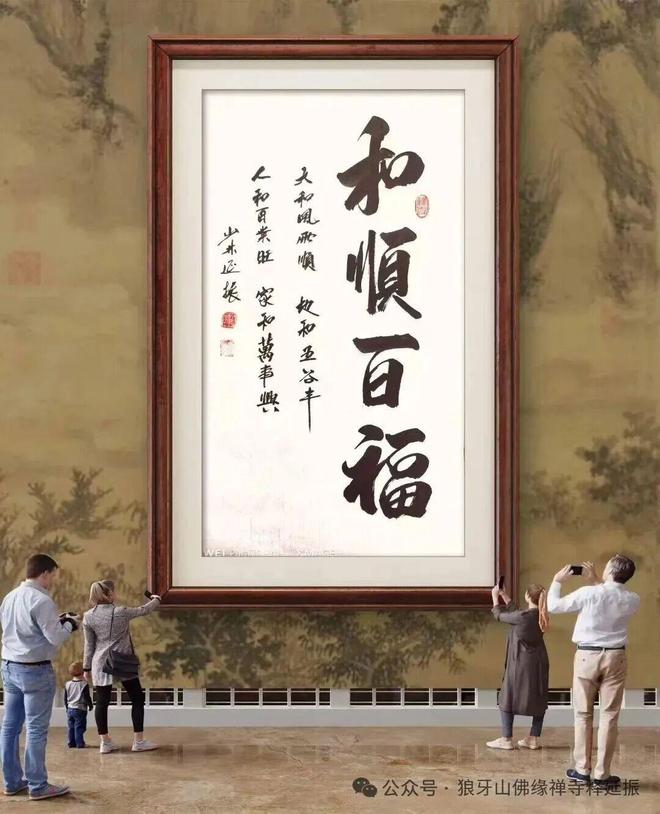 和順百福
天和風雨順 地和五谷丰
人和百業旺 家和萬事興
少林延振
公众号 · 狼牙山佛缘禅寺释延振